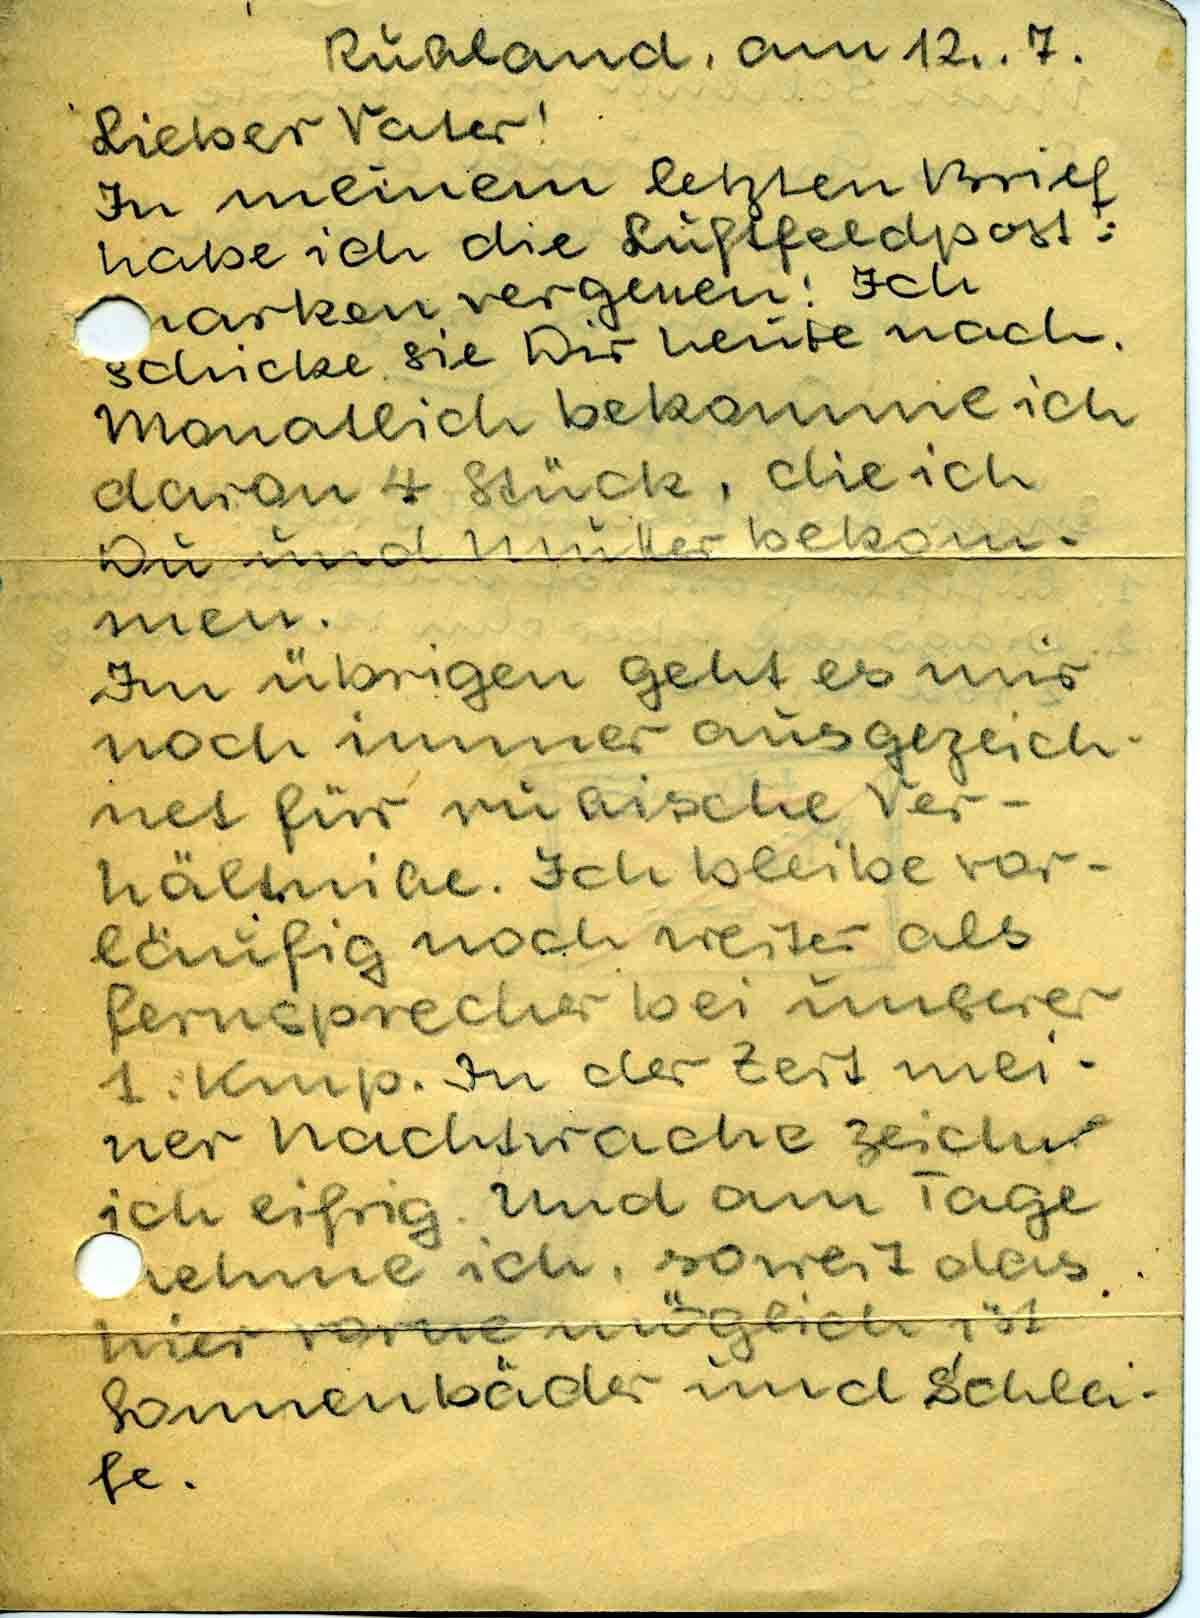 Rußland, am 12. 7.
Lieber Vater!
In meinem letzten Brief
habe ich die Luftfeldpost-
marken vergessen! Ich
schicke sie Dir heute nach.
Monatlich bekomme ich
davon 4 Stück, die ich
Du und Mutter bekom-
men.
Im übrigen geht es mir
noch immer ausgezeich-
net für rußische Ver-
hältniße. Ich bleibe vor-
läufig noch weiter als
Fernsprecher bei unserer
1. Kmp. In der Zeit mei-
ner Nachtwache zeichne
ich eifrig. Und am Tage
nehme ich, soweit das
hier vorne möglich ist
Sonnenbäder und Schlei-
fe.